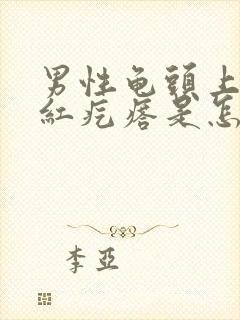 男性龟頭上
紅疙瘩是怎
李亞